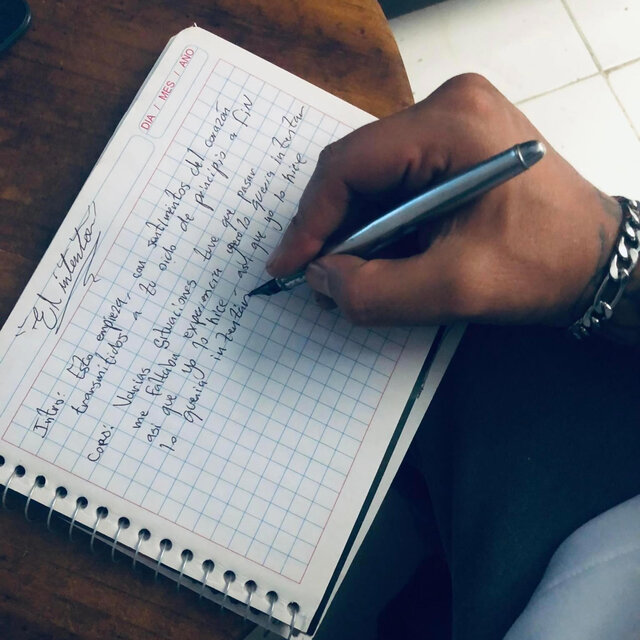 DIA / MES / AÑO
"El intento"
Intro: Esto empieza, con sentimientos del corazón
transmitidos a tu oido de principio a fin
Coro: Varias situaciones tuve que pasar
me faltaba experiencia y solo quería intentar
así que yo lo hice, así que yo lo hice
lo quería intentar